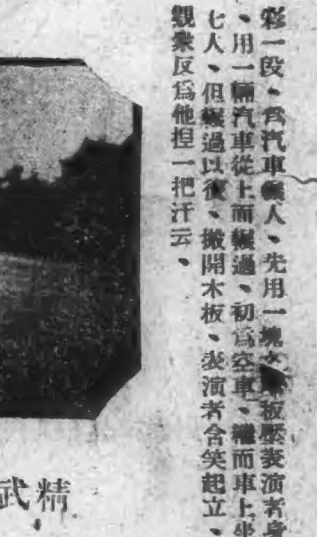 彩一段、為汽車輾人、先用一塊木板壓表演者身
、用一輛汽車從上而輾過、初爲空車、繼而車上坐
七人、但輾過以後、搬開木板、表演者含笑起立、
觀衆反爲他揑一把汗云、
精武